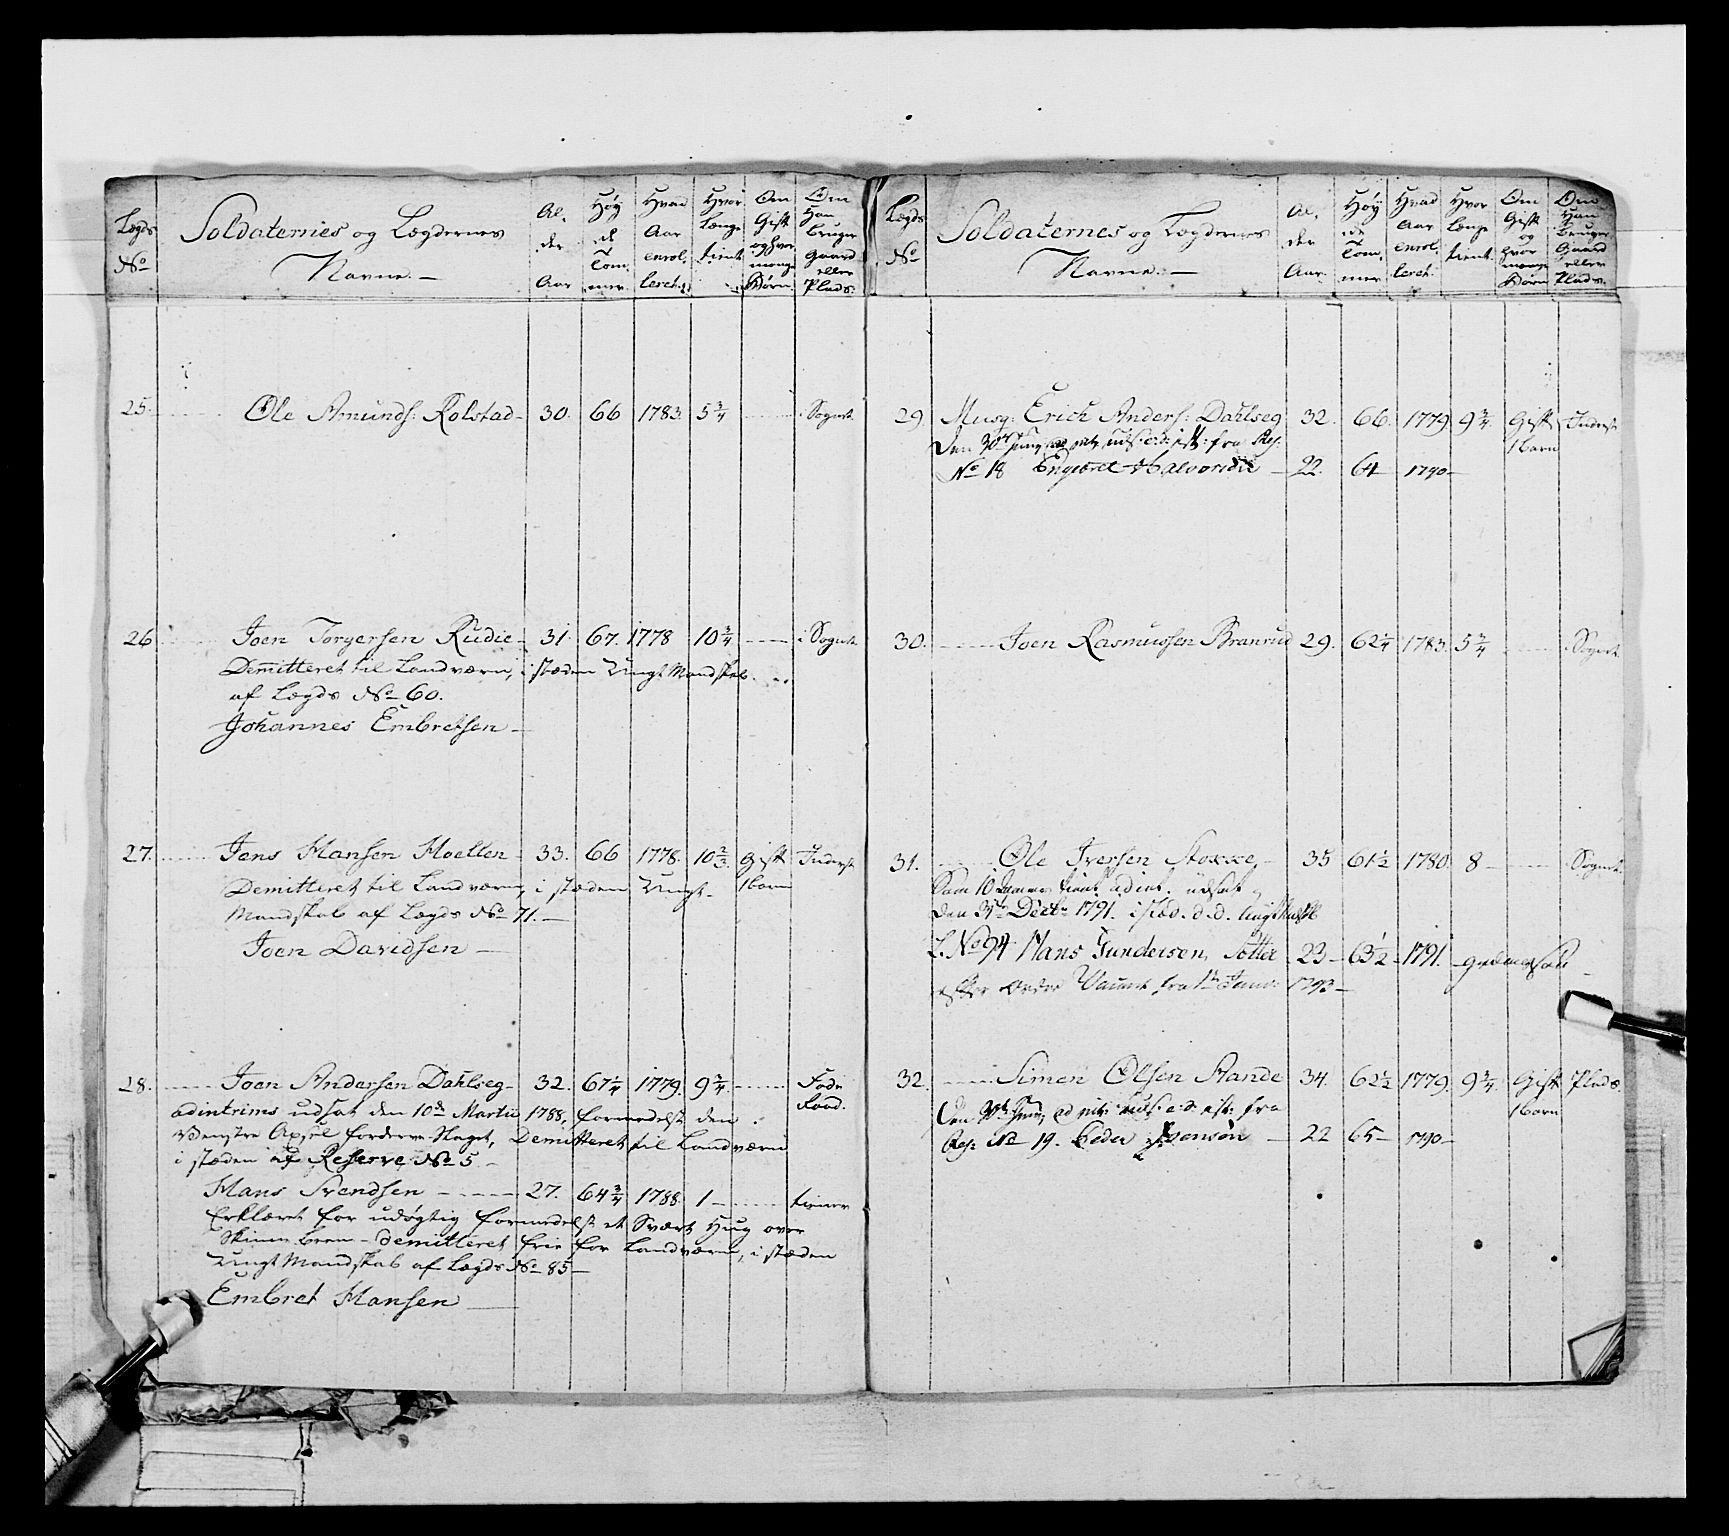 Lægds No
Soldaternes og Lægdernes Navne. —
Al, der Aar
Høy de Tom, mer
Hvad Aar enrol, leret.
Hvor længe tient
Om Gift og hvor mange Børn
Om Han bruger Gaard eller Plads.
25. Ole Amunds: Kolstad 30. 66 1783. 5¾ Sognet.
26 Joen Torgersen Rudie 31 67. 1778 10¾ i Sognet.
Demitteret til Landværn, i stæden Ungt Mandskab
af Lægds No 60.
Johannes Embretsen —
27. Jens Hansen Moellen 33. 66 1778. 10⅔ Gift Inderst
Demitteret til Landværn, i stæden Ungt 1 barn
Mandskab af Lægds No 71. —
Joen Davidsen —
28. Joen Andersen Dahlseg 32. 67¼ 1779. 9¾
adintrims udsat den 10de Martii 1788, formedelst den
Venstre Axsel Demitteret til Landværn
i stæden af Reserve No 5
Hans Svendsen — 27. 64¾ 1788. 1 — tiener
Erklæret for udøgtig formedelst et Svært Hug over
Skinne been — demitteret frie for Landværn, i stæden
Ungt Mandskab af Lægds No 85 —
Embret Hansen —
Lægds No
Soldaternes og Lægdernes Navne. —
Al, der Aar.
Høy de Tom, mer
Hvad Aar enrol, leret.
Hvor længe tient.
Om Gift og hvor mange Børn
Om Han bruger Gaard eller Plads.
29. Musq: Erich Anders: Dahlseg 32. 66. 1779 9¾ Gift Inderst
fra Res: 1 barn
No 18 Halvorsen — 22. 64 1790 —
30. Joen Rasmussen Branrud 29. 62¼ 1783. 5¾ Sognet.
31. Ole Iversen 35 61½ 1780. 8 — Sognet.
Som 10 tient adint. udsat
den Decbr 1791. i stæd.
L. No 94 Hans Gundersen 23 — 63½ — 1791.
efter Ordre fra 1te Janv: 1793 —
32. Simen Olsen Sande 34. 62½ 1779. 9¾ Gift Plads.
fra 1 barn
Res: No 19. Peder — 22 65 — 1790 —